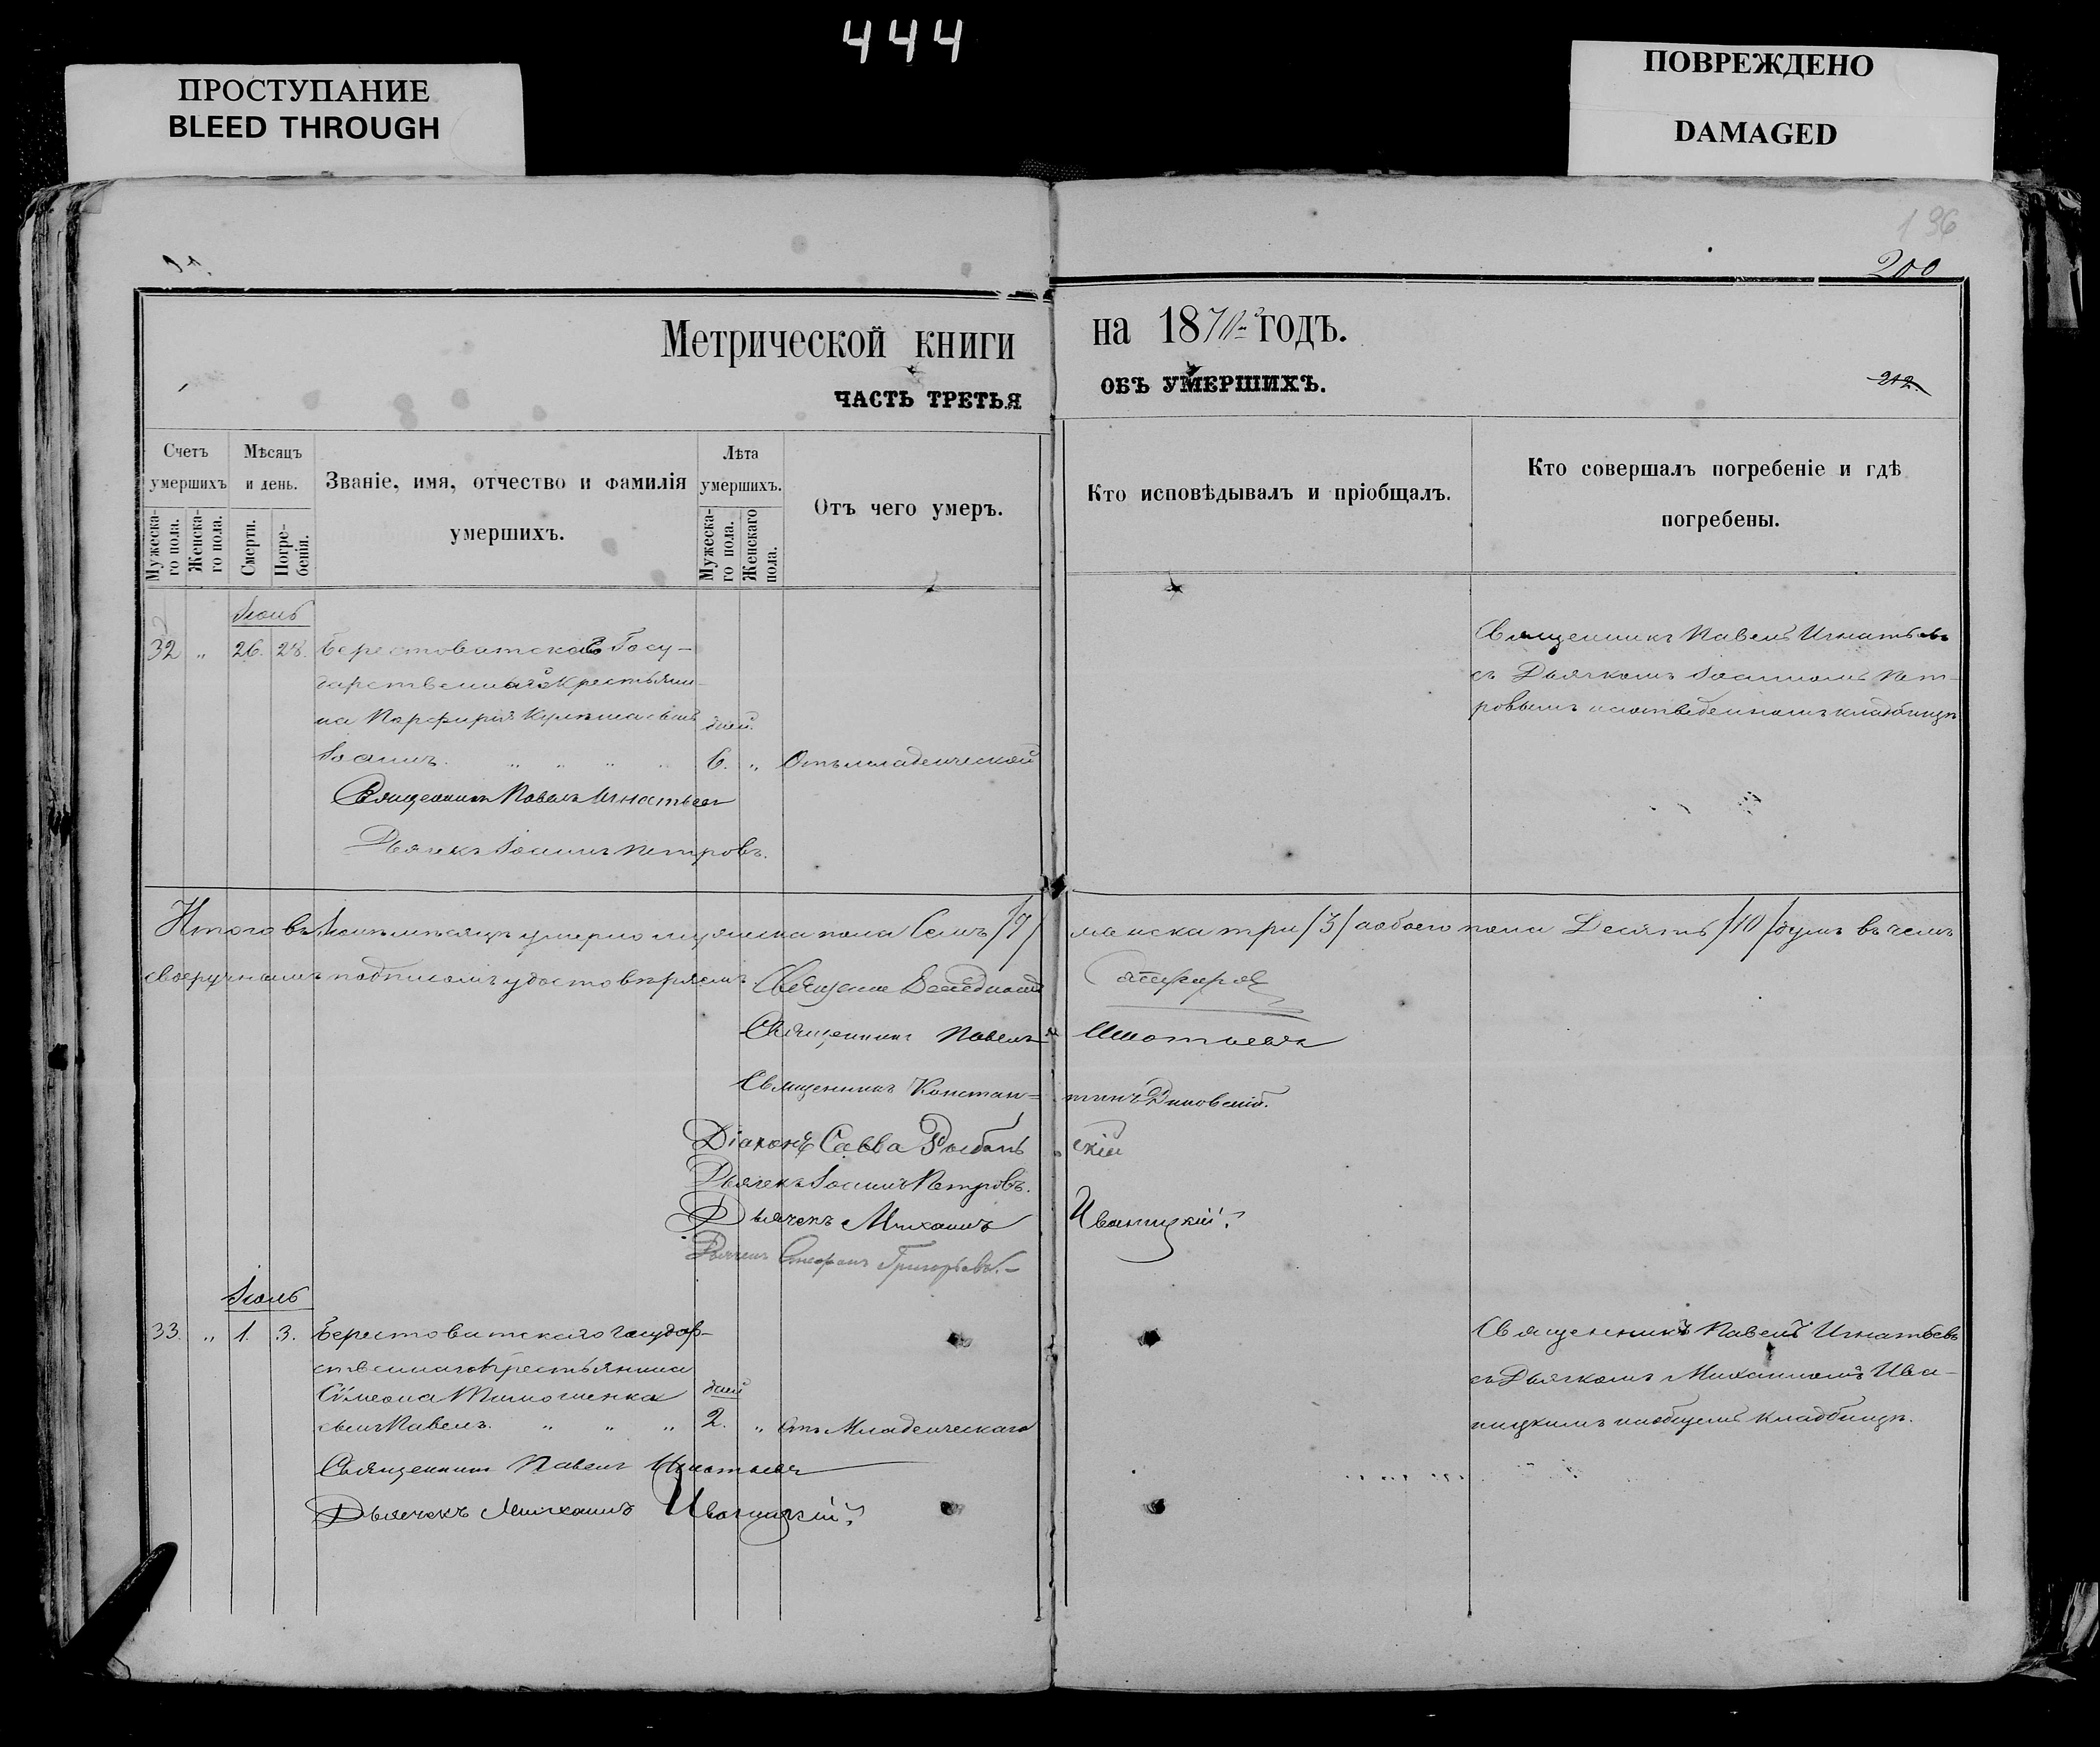 444
ПРОСТУПАНИЕ
BLEED THROUGH
ПОВРЕЖДЕНО
DAMAGED
196
200
Метрической книги на 1870 годъ.
ЧАСТЬ ТРЕТЬЯ ОБЪ УМЕРШИХЪ.
212.
Счетъ умершихъ
Мужеска-го пола.
Женска-го пола.
Мѣсяцъ и день.
Смерти.
Погре-бенія.
Званіе, имя, отчество и фамилія умершихъ.
Лѣта умершихъ.
Мужеска-го пола.
Женскаго пола.
Отъ чего умеръ.
Кто исповѣдывалъ и пріобщалъ.
Кто совершалъ погребеніе и гдѣ погребены.
32 " 26. 28. Берестоватскаго Госу-
дарственнаго Крестьяни-
на Порфирія сынъ дней
Іоаннъ. " " " " 6. " Отъ младенческой
Священникъ Павелъ Игнатьевъ
съ Дьячкомъ Іоанномъ Пет-
ровымъ кладбищѣ
Священникъ Павелъ Игнатьевъ
Дьячекъ Іоаннъ Петровъ.
Итого въ мѣсяцѣ умерло мужеска пола Семь /7/ женска три /3/ а обоего пола Десять /10/ душъ въ чемъ
своеручнымъ подписомъ удостовѣряемъ
Священникъ Павелъ Игнатьевъ
Священникъ Констан=тинъ
Діаконъ Савва скій
Дьячекъ Іоаннъ Петровъ.
Дьячекъ Михаилъ Иваницкій.
Дьячекъ Григорьевъ.
Іюль
33. " 1. 3. Берестоватскаго государ-
ственнаго крестьянина
Сѵмеона Тимошенка дней
сынъ Павелъ. " " " 2. " Отъ Младенческаго
Священникъ Павелъ Игнатьевъ
съ Дьячкомъ Михаиломъ Ива-
ницкимъ на общемъ кладбищѣ.
Священникъ Павелъ Игнатьевъ
Дьячекъ Михаилъ Иваницкій.